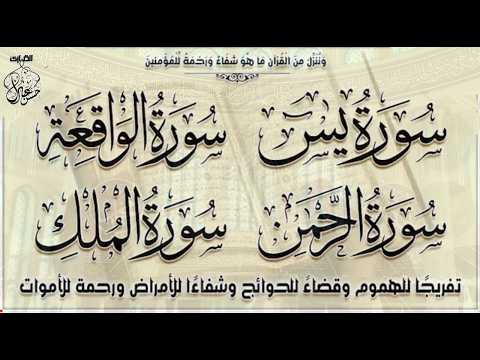 وَنُنَزِّلُ مِنَ الْقُرْآنِ مَا هُوَ شِفَاءٌ وَرَحْمَةٌ لِلْمُؤْمِنِينَ
سُورَةُ يس سُورَةُ الْوَاقِعَةِ
سُورَةُ الرَّحْمَن سُورَةُ الْمُلْكِ
تفريجًا للهموم وقضاءً للحوائج وشفاءًا للأمراض ورحمة للأموات